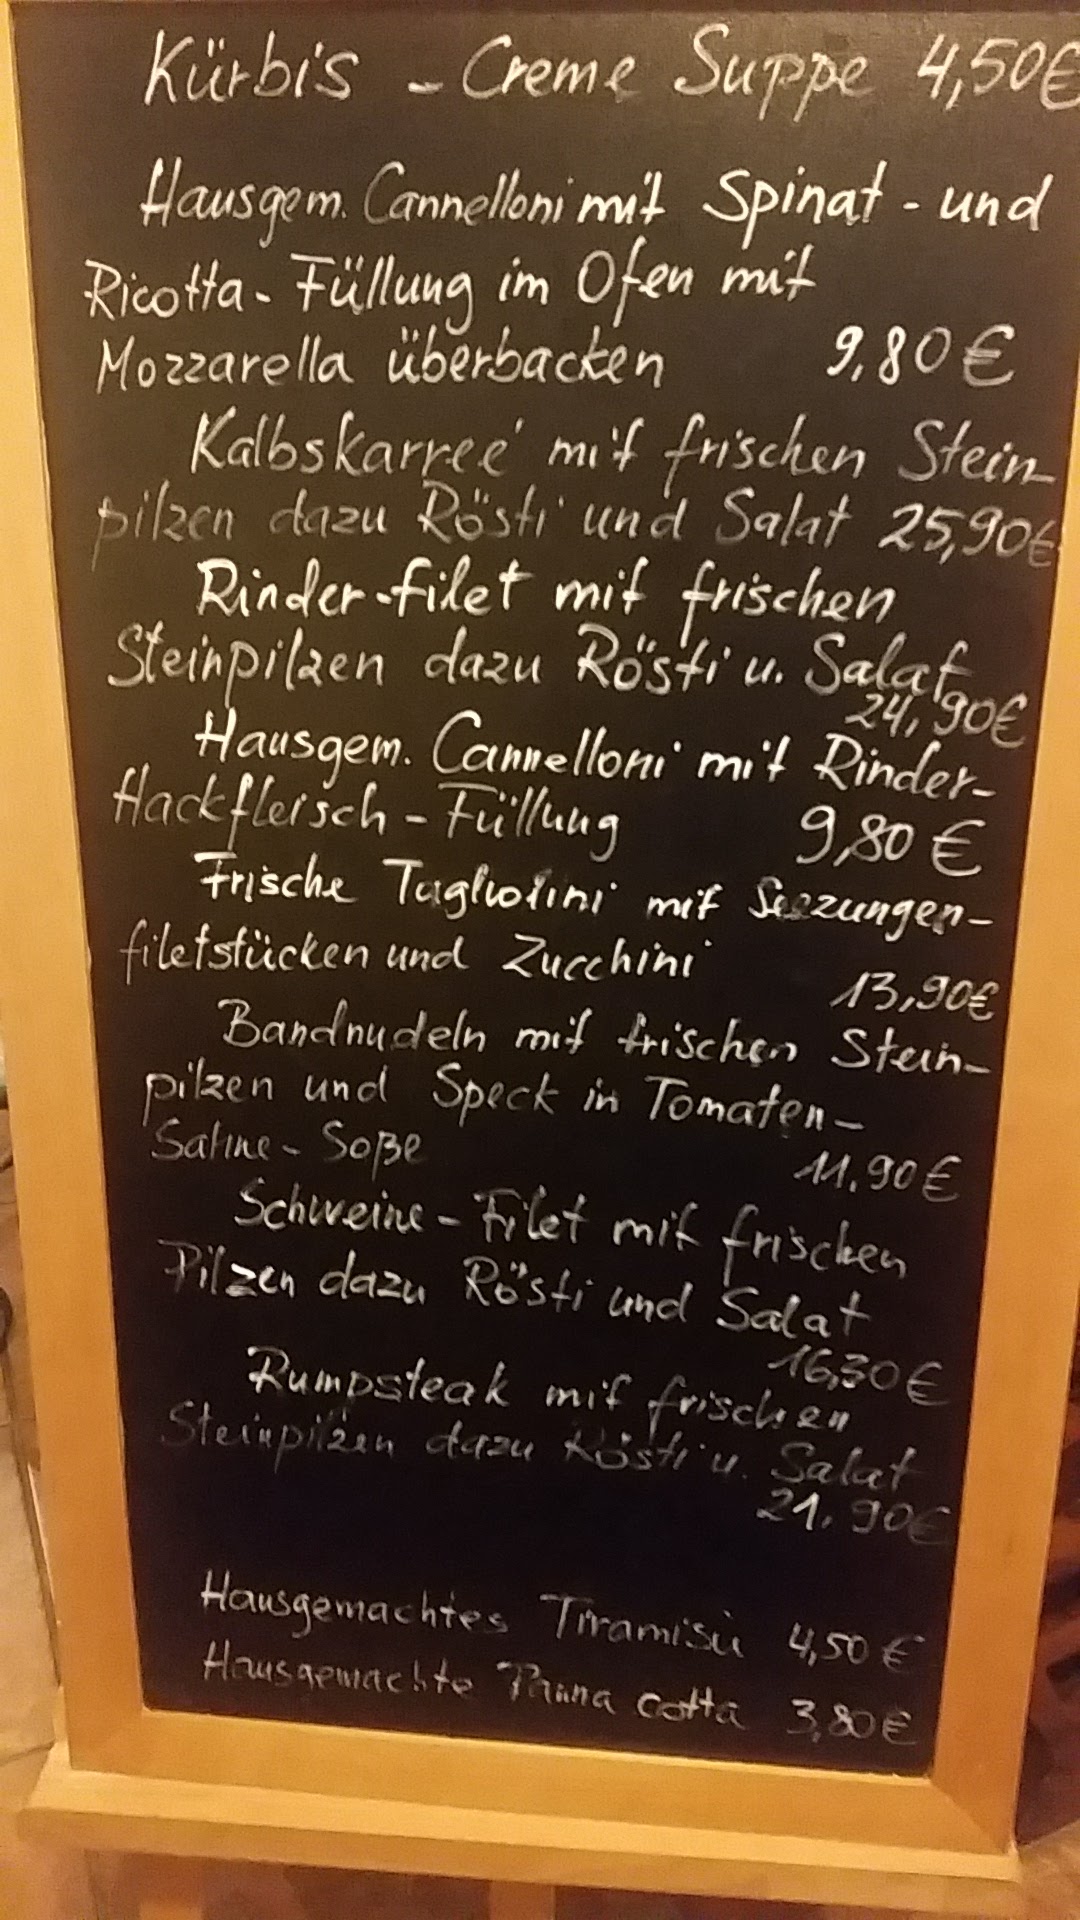 Kürbis - Creme Suppe 4,50€
Hausgem. Cannelloni mit Spinat - und
Ricotta - Füllung im Ofen mit
Mozzarella überbacken 9,80 €
Kalbskarreé mit frischen Stein-
pilzen dazu Rösti und Salat 25,90€
Rinder-filet mit frischen
Steinpilzen dazu Rösti u. Salat
24,90€
Hausgem. Cannelloni mit Rinder-
Hackfleisch - Füllung 9,80 €
Frische Tagliolini mit Seezungen-
filetstücken und Zucchini
13,90€
Bandnudeln mit frischen Stein-
pilzen und Speck in Tomaten-
Sahne - Soße 11.90€
Schweine - Filet mit frischen
Pilzen dazu Rösti und Salat
16,30€
Rumpsteak mit frischen
Steinpilzen dazu Rösti u. Salat
21,90€
Hausgemachtes Tiramisù 4,50 €
Hausgemachte Panna cotta 3,80€